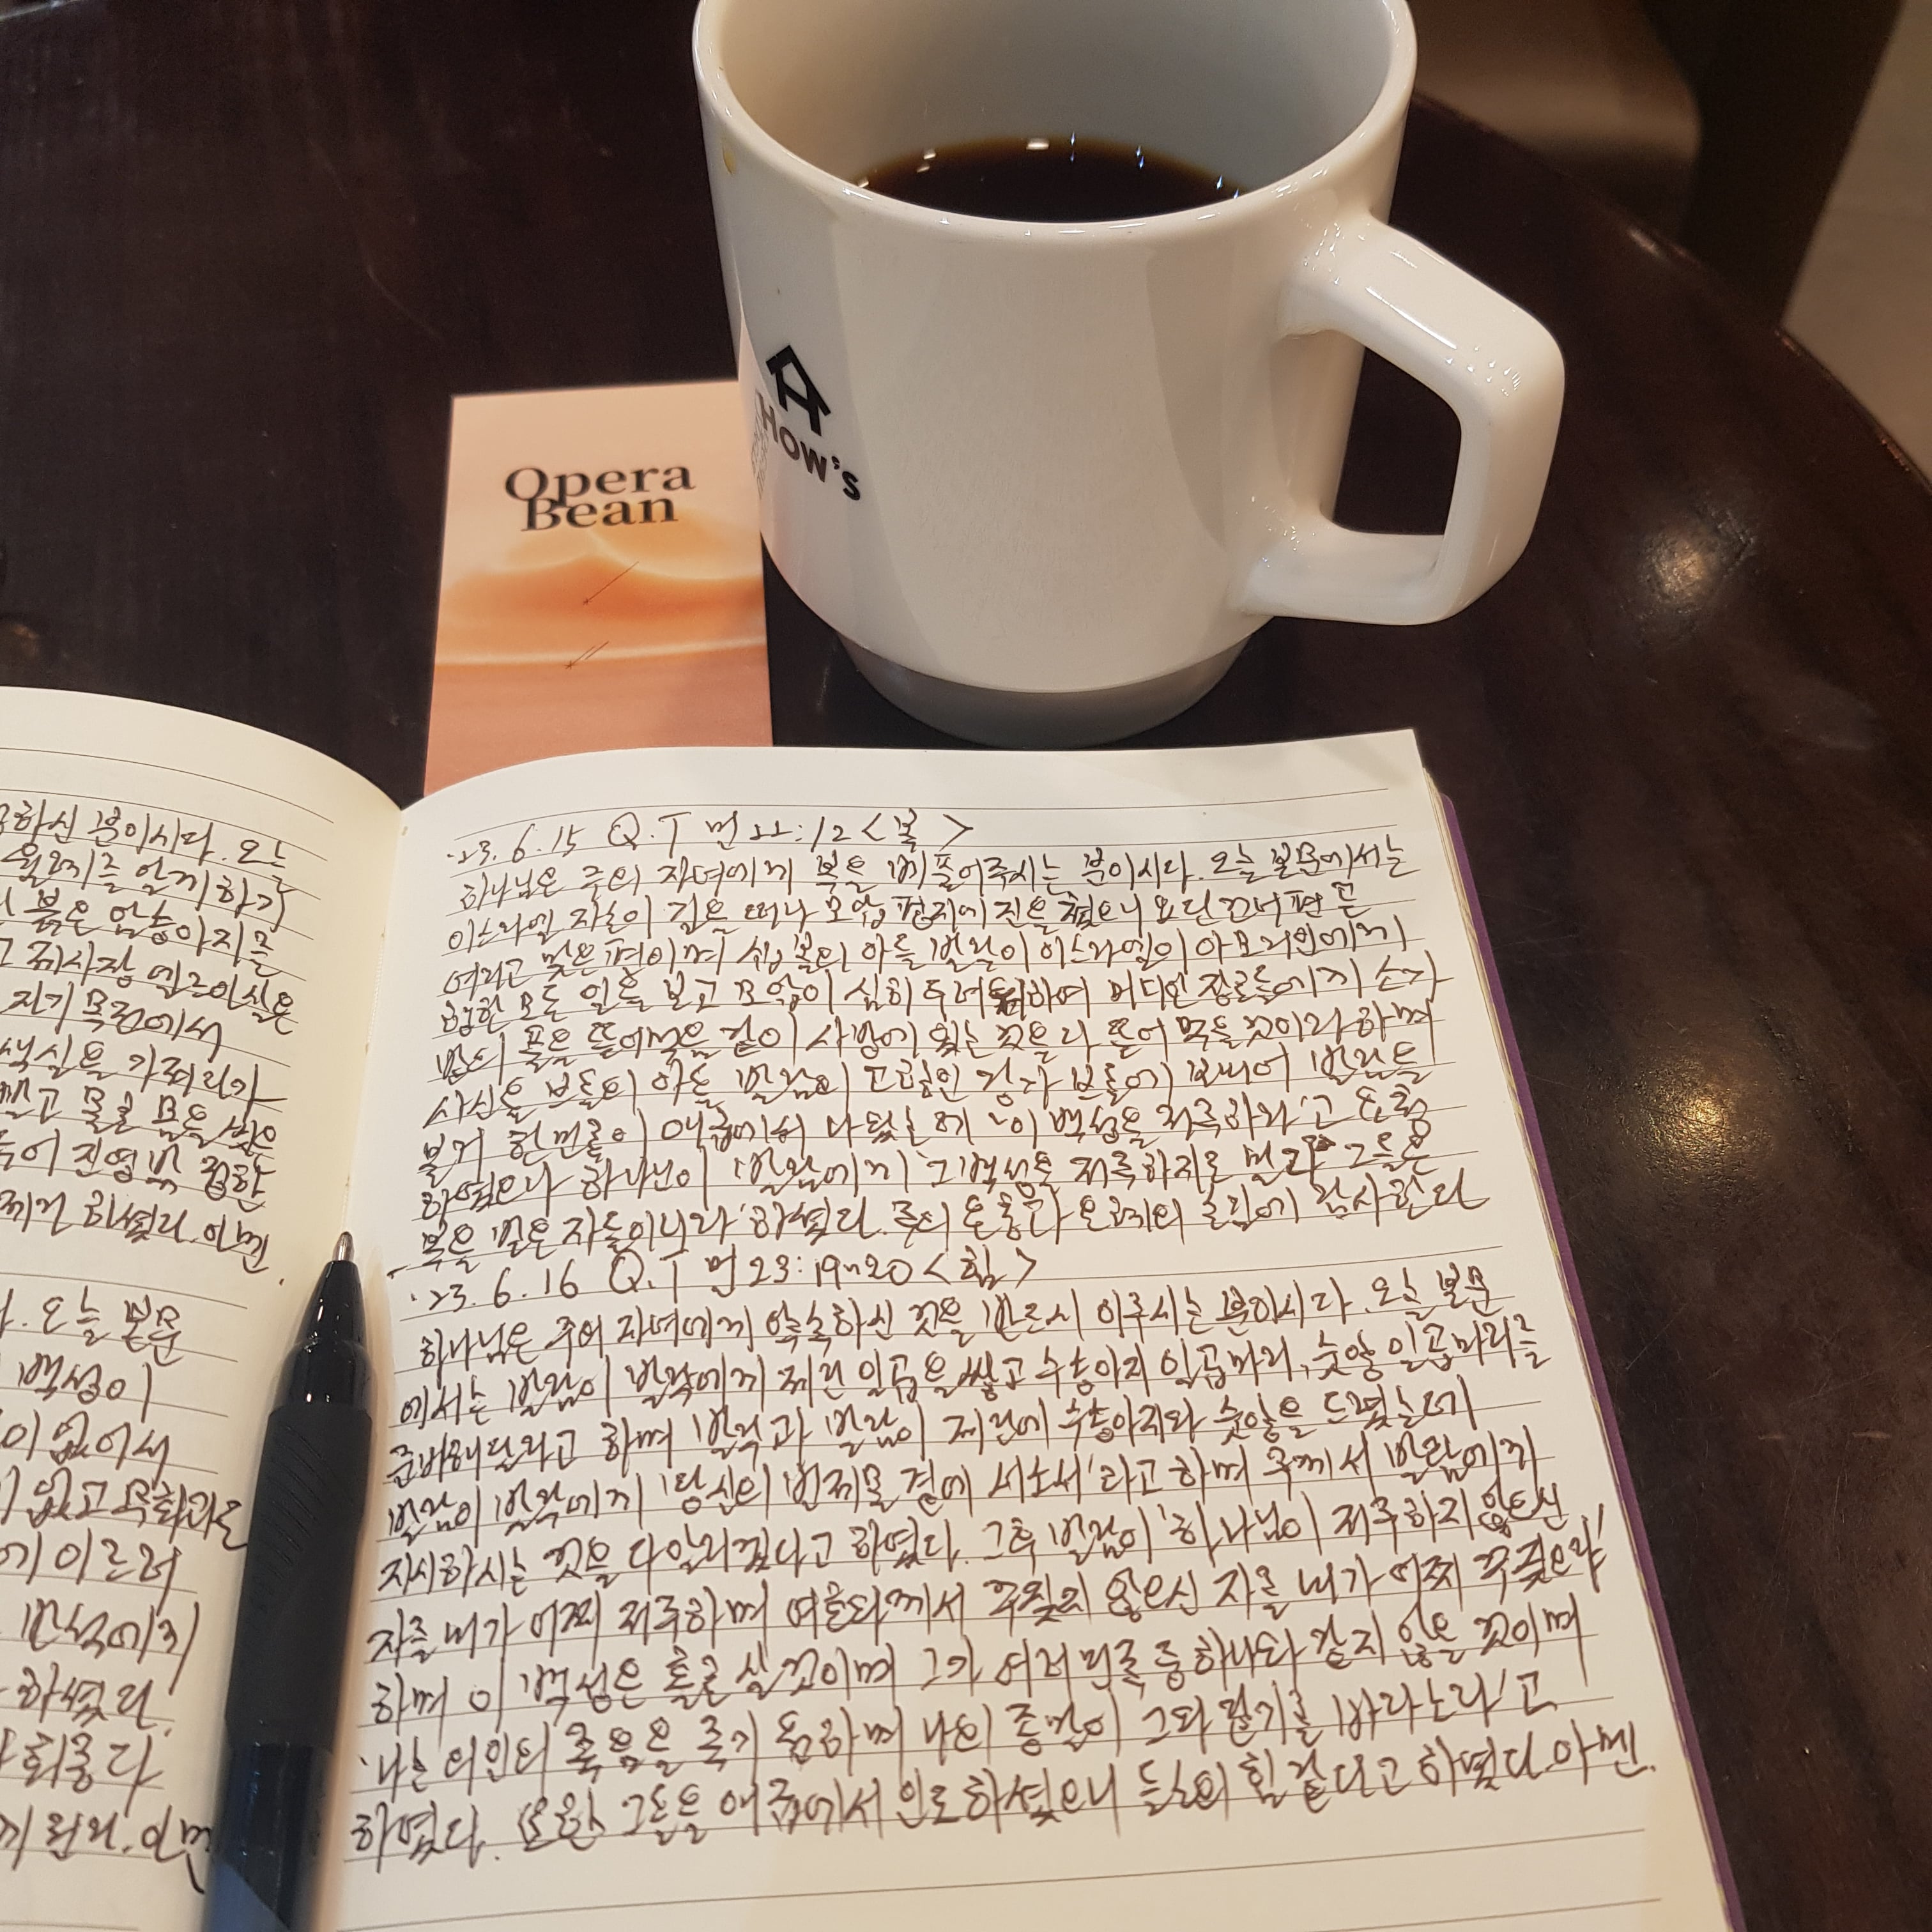 How's
Opera
Bean
하신 분이시다. 오늘
알게 하기
붉은 암송아지를
제사장 엘르아살은
지기 목전에서
색실을 가져다가
진영 밖 정한
하셨다. 아멘.
오늘 본문
백성이
이 없어서
없고 무화과도
에 이르러
반석에게
하셨다.
아멘
'23.6.15 Q.T 민22:12 <복>
하나님은 주의 자녀에게 복을 베풀어주시는 분이시다. 오늘 본문에서는
이스라엘 자손이 길을 떠나 모압 평지에 진을 쳤으니 요단 건너편 곧
여리고 맞은편이며 십볼의 아들 발락이 이스라엘이 아모리인에게
행한 모든 일을 보고 모압이 심히 두려워하여 미디안 장로들에게 소가
밭의 풀을 뜯어먹음 같이 사방에 있는 것을 다 뜯어 먹을 것이라 하며
사신을 브올의 아들 발람의 고향인 강가 브돌에 보내어 발람을
불러 한 민족이 애굽에서 나왔는데 '이 백성을 저주하라'고 요청
하였으나 하나님이 발람에게 '그 백성을 저주하지도 말라 그들은
복을 받은 자들이니라' 하셨다. 주의 은총과 은혜의 감사한다
'23.6.16 Q.T 민23:19~20 <힘>
하나님은 주의 자녀에게 약속하신 것을 반드시 이루시는 분이시다. 오늘 본문
에서는 발람이 발락에게 제단 일곱을 쌓고 수송아지 일곱마리, 숫양 일곱마리를
준비해달라고 하며 발락과 발람이 제단에 수송아지와 숫양을 드렸는데
발람이 발락에게 '당신의 번제물 곁에 서소서'라고 하며 주께서 발람에게
지시하시는 것을 다 알리겠다고 하였다. 그후 발람이 '하나님이 저주하지 않으신
자를 내가 어찌 저주하며 여호와께서 꾸짖지 않으신 자를 내가 어찌 꾸짖으랴'
하며 이 백성은 홀로 살 것이며 그가 여러 민족 중 하나와 같지 않을 것이며
'나는 의인의 죽음을 죽기 원하며 나의 종말이 그와 같기를 바라노라'고
하였다. 그들을 애굽에서 인도하셨으니 들소의 힘 같다고 하였다. 아멘.